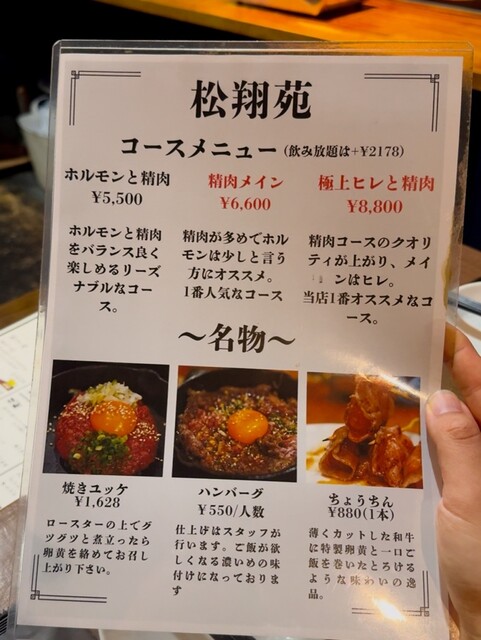 松翔苑
コースメニュー (飲み放題は+¥2178)
ホルモンと精肉
¥5,500
精肉メイン
¥6,600
極上ヒレと精肉
¥8,800
ホルモンと精肉
をバランス良く
楽しめるリーズ
ナブルなコー
ス。
精肉が多めでホル
モンは少しと言う
方にオススメ。
1番人気なコース
精肉コースのクオリ
ティが上がり、メイ
ンはヒレ。
当店1番オススメなコ
ース。
～名物～
焼きユッケ
¥1,628
ハンバーグ
¥550/人数
ちょうちん
¥880(1本)
ロースターの上でグ
ツグツと煮立ったら
卵黄を絡めてお召し
上がり下さい。
仕上げはスタッフが
行います。ご飯が欲
しくなる濃いめの味
付けになっておりま
す
薄くカットした和牛
に特製卵黄と一口ご
飯を巻いたとろける
ような味わいの逸
品。